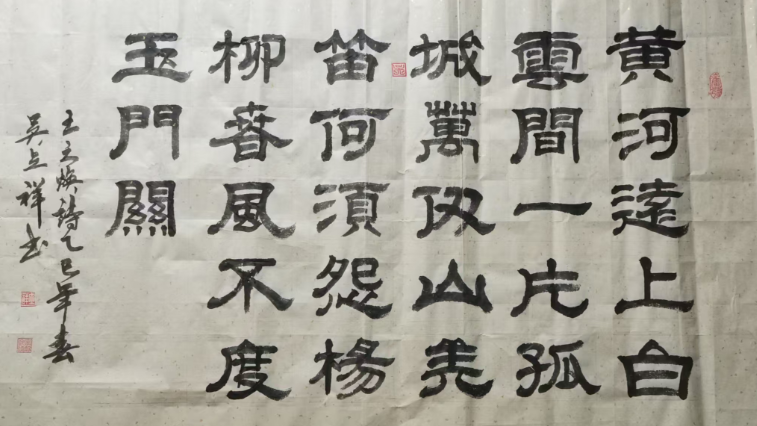 黄河遠上白
雲間一片孤
城萬仞山羌
笛何須怨楊
柳春風不度
玉門關
王之煥詩乙巳年春
吴立祥书